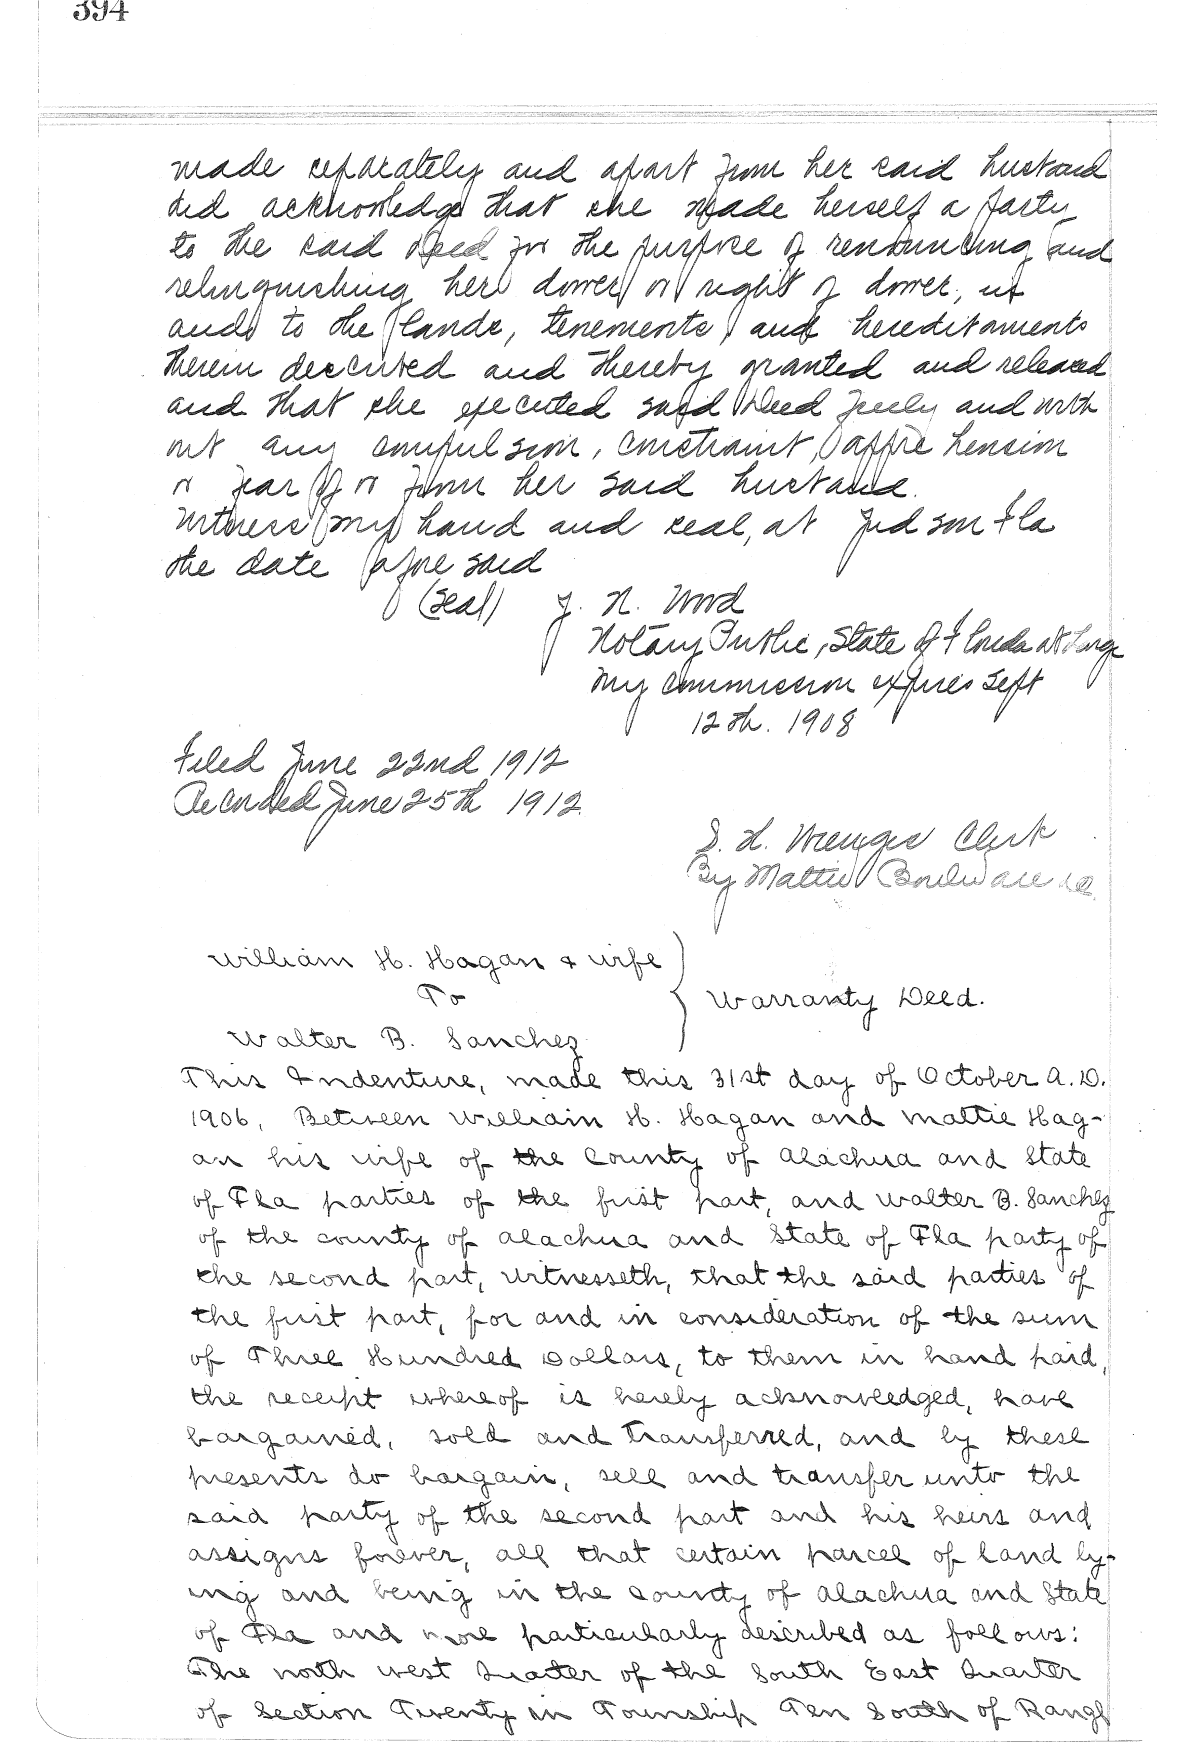 394
made separately and apart from her said husband
did acknowledge that she made herself a party
to the said Deed for the purpose of renouncing and
relinquishing her dower or right of dower, in
and to the lands, tenements and hereditaments
therein described and thereby granted and released
and that she executed said Deed freely and with
out any compulsion, constraint, appre hension
or fear of or from her said husband.
Witness my hand and seal, at Judson Fla
the date afore said
(Seal) J. N. Wood
Notary Public, State of Florida at Large
My Commission expires Sept
12th. 1908
Filed June 22nd 1912
Recorded June 25th 1912.
S. H. Wienges Clerk
By Mattie Boulware
William H. Hagan & wife
To
Warranty Deed.
Walter B. Sanchez
This Indenture, made this 31st day of October A.D.
1906, Between William H. Hagan and Mattie Hag-
an his wife of the County of Alachua and State
of Fla parties of the first part, and Walter B. Sanchez
of the county of Alachua and State of Fla party of
the second part, Witnesseth, that the said parties of
the first part, for and in consideration of the sum
of Three Hundred Dollars, to them in hand paid,
the receipt whereof is hereby acknowledged, have
bargained, sold and transferred, and by these
presents do bargain, sell and transfer unto the
said party of the second part and his heirs and
assigns forever, all that certain parcel of land ly-
ing and being in the county of Alachua and State
of Fla and more particularly described as follows:
The north west Quarter of the South East Quarter
of Section Twenty in Township Ten South of Range